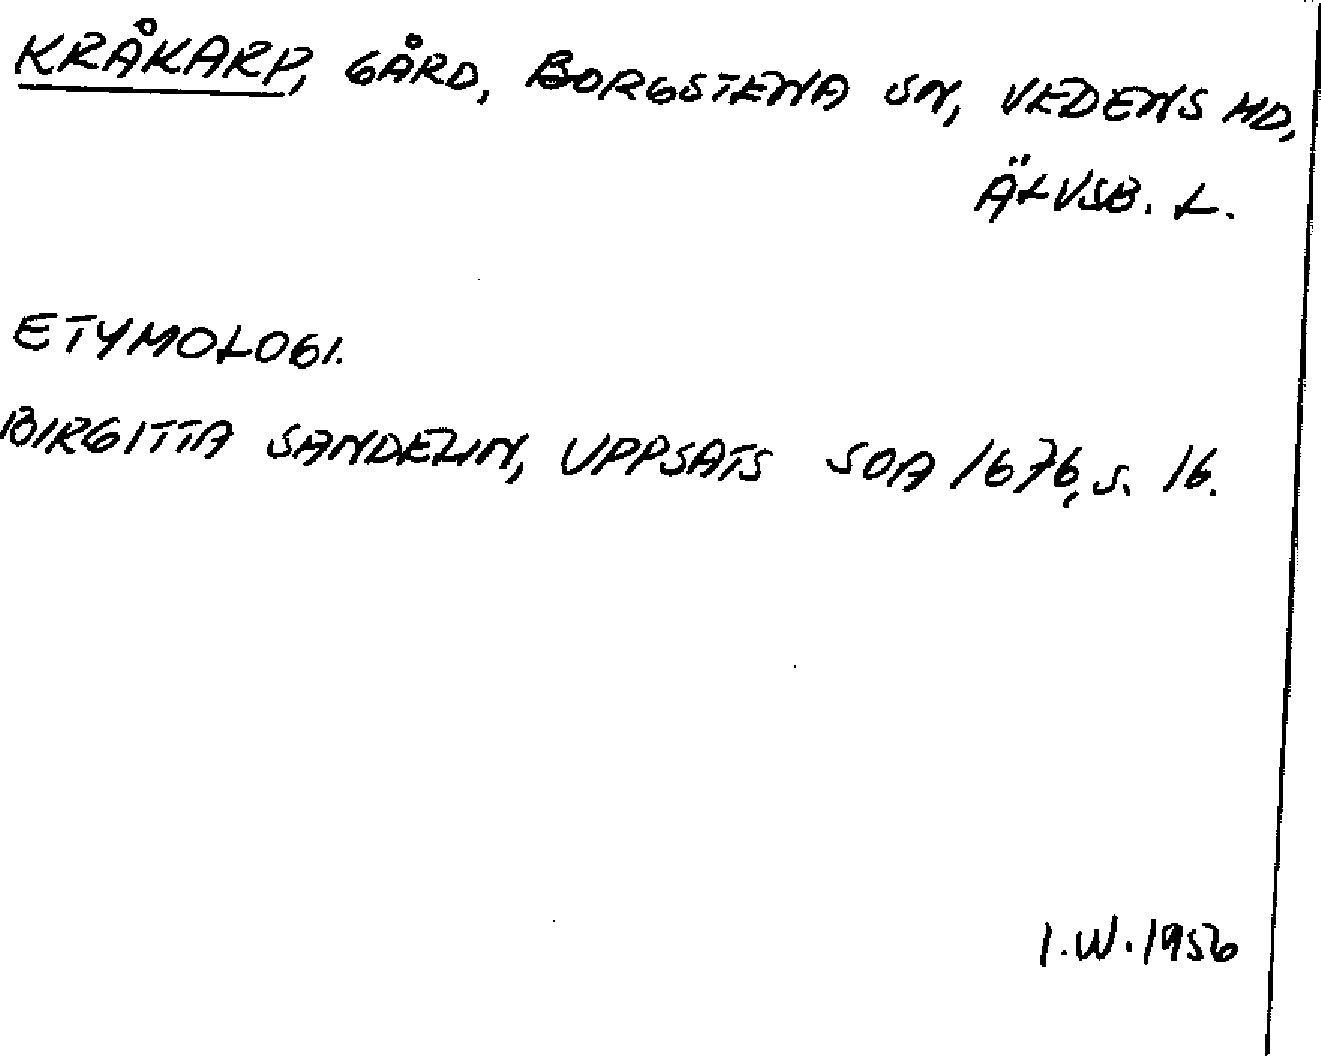 KRÅKARP, GÅRD, BORGSTENA SN, VEDENS HD,
ÄLVSB. L.
ETYMOLOGI.
BIRGITTA SANDELIN, UPPSATS SOA 1676, s. 16.
I.W. 1956